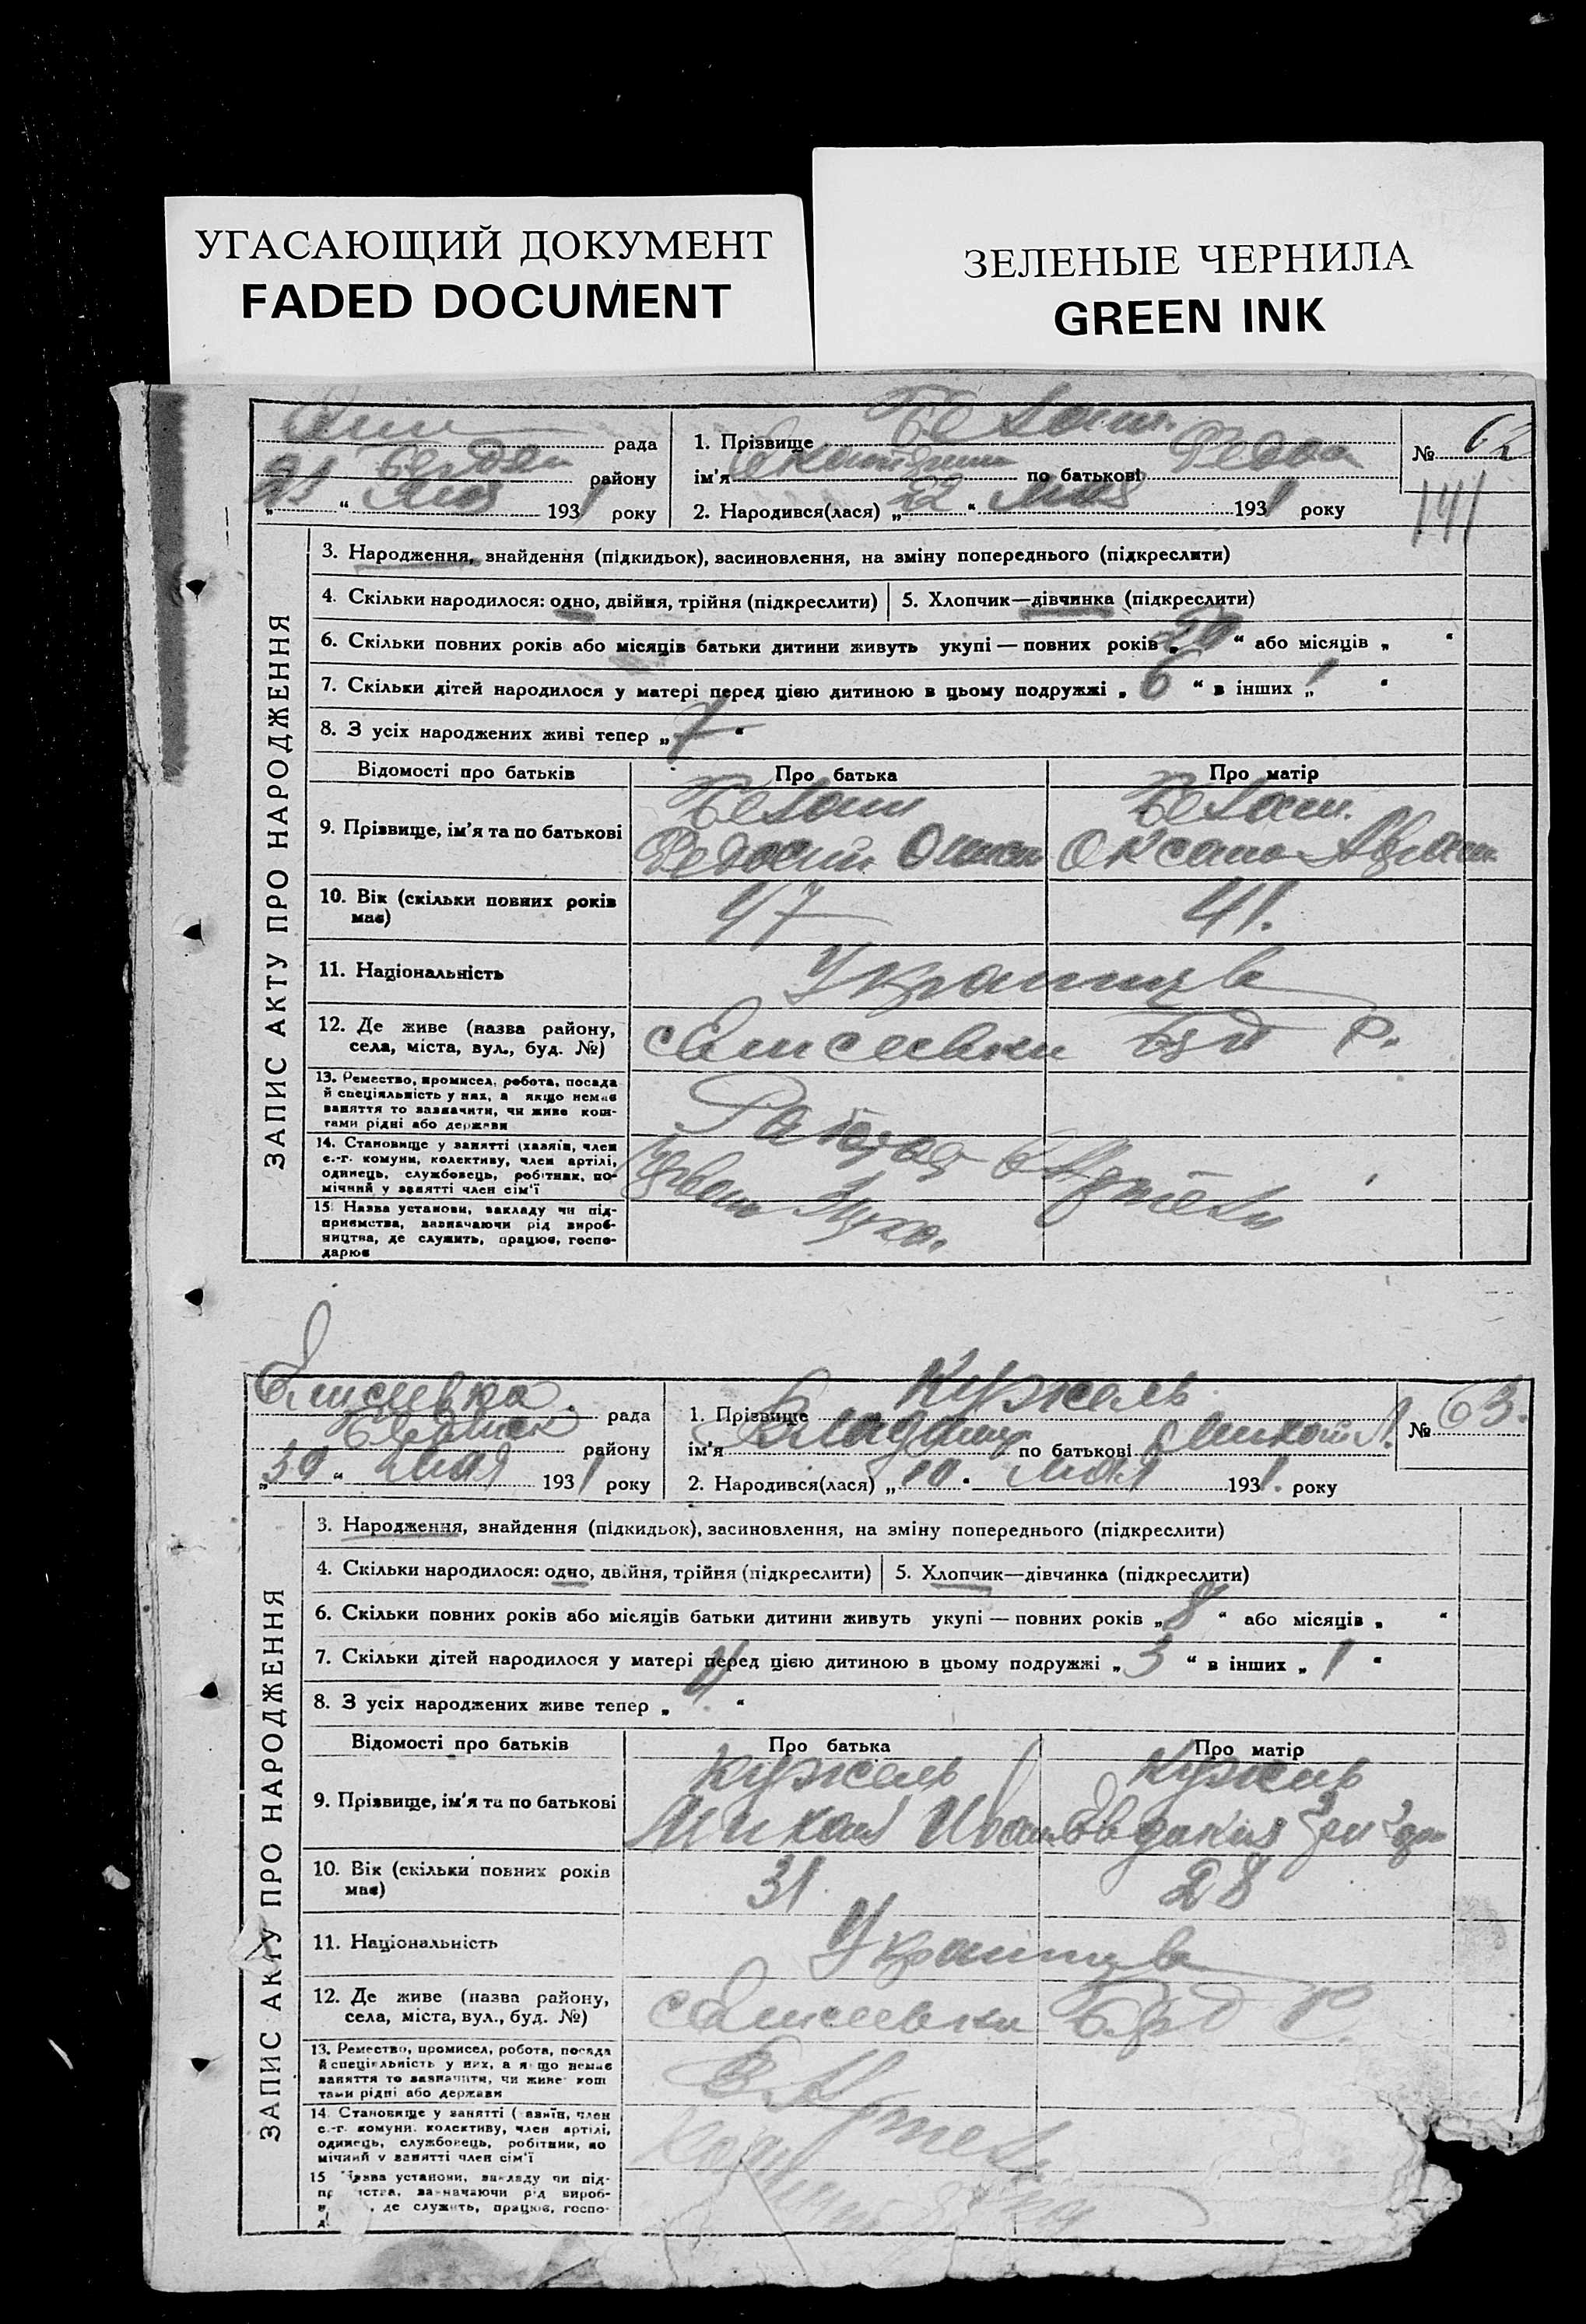 УГАСАЮЩИЙ ДОКУМЕНТ
FADED DOCUMENT
ЗЕЛЕНЫЕ ЧЕРНИЛА
GREEN INK
рада
району
1931 року
1. Прізвище
ім'я по батькові
2. Народився(лася) „22“ мая 1931 року
№ 62
141
ЗАПИС АКТУ ПРО НАРОДЖЕННЯ
3. Народження, знайдення (підкидьок), засиновлення, на зміну попереднього (підкреслити)
4. Скільки народилося: одно, двійня, трійня (підкреслити)
5. Хлопчик—дівчинка (підкреслити)
6. Скільки повних років або місяців батьки дитини живуть укупі — повних років „20“ або місяців „ “
7. Скільки дітей народилося у матері перед цією дитиною в цьому подружжі „6“ в інших „1“
8. З усіх народжених живі тепер „7“
Відомості про батьків
Про батька
Про матір
9. Прізвище, ім'я та по батькові
Федосий
Оксана
10. Вік (скільки повних років має)
47
41.
11. Національність
Украинцв
12. Де живе (назва району, села, міста, вул., буд. №)
с Елисеевки Брд Р.
13. Ремество, промисел, робота, посада
й спеціяльність у них, а якщо немає
заняття то зазначити, чи живе кош-
тами рідні або держави
14. Становище у занятті (хазяїн, член
с.-г. комуни, колективу, член артілі,
одинець, службовець, робітник, по-
мічний у занятті член сім'ї
15. Назва установи, закладу чи під-
приємства, зазначаючи рід вироб-
ництва, де служить, працює, госпо-
дарює
в Артели
Елисеевка рада
району
30 “ мая 1931 року
1. Прізвище Кужель
ім'я Владимир по батькові Михайл.
2. Народився(лася) „10. мая 1931. року
№ 63.
ЗАПИС АКТУ ПРО НАРОДЖЕННЯ
3. Народження, знайдення (підкидьок), засиновлення, на зміну попереднього (підкреслити)
4. Скільки народилося: одно, двійня, трійня (підкреслити)
5. Хлопчик—дівчинка (підкреслити)
6. Скільки повних років або місяців батьки дитини живуть укупі — повних років „8“ або місяців „ “
7. Скільки дітей народилося у матері перед цією дитиною в цьому подружжі „3“ в інших „1“
8. З усіх народжених живе тепер „4“
Відомості про батьків
Про батька
Про матір
9. Прізвище, ім'я та по батькові
Кужель
Кужель
Михаил Иван
Евдокия Григор
10. Вік (скільки повних років має)
31
28
11. Національність
Украинцв
12. Де живе (назва району, села, міста, вул., буд. №)
с Елисеевки Брд Р.
13. Ремество, промисел, робота, посада
й спеціяльність у них, а якщо немає
заняття то зазначити, чи живе кош
тами рідні або держави
14. Становище у занятті (хазяїн, член
с.-г. комуни, колективу, член артілі,
одинець, службовець, робітник, по
мічний у занятті член сім'ї
15 Назва установи, закладу чи під-
зазначаючи рід вироб-
де служить, працює, госпо-
В Артели